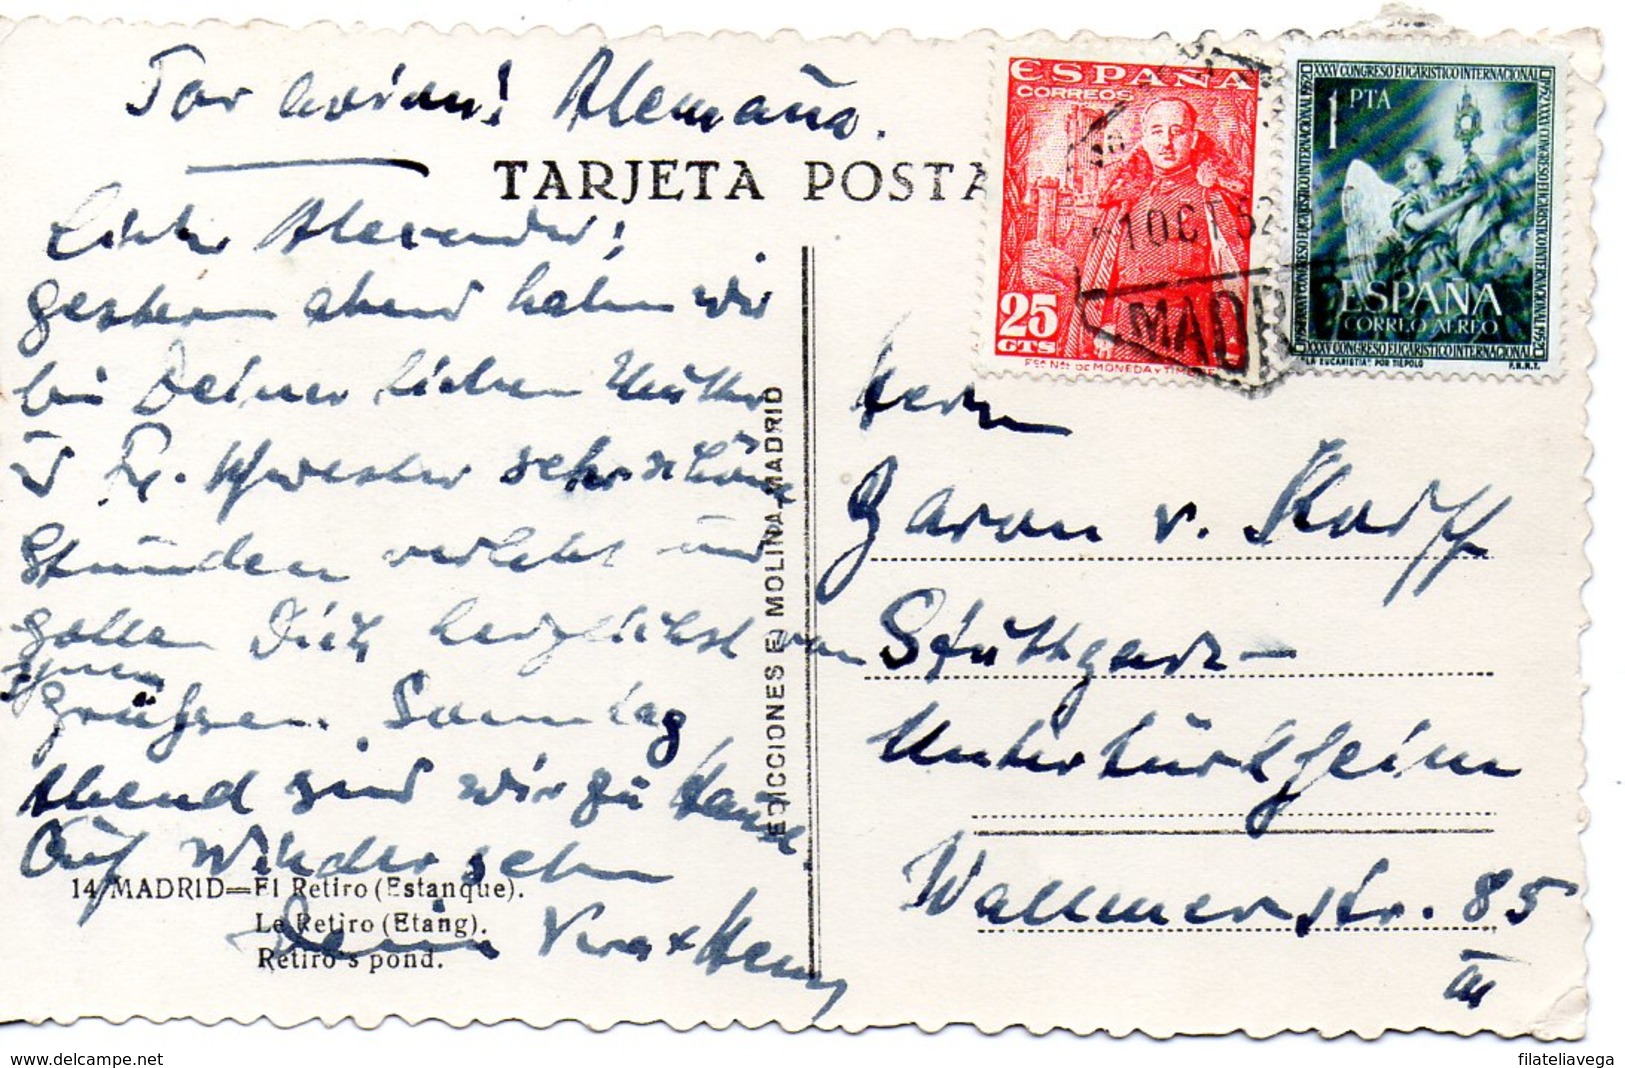 Por avion! Alemaña.
TARJETA POSTA
Lieber Alexander!
gestern abend haben wir
bei Deiner lieben Mutter
u Fr. Schwester sehr schöne
Stunden verlebt und
sollen Dich herzlichst von
ihnen
grüssen. Sonntag
Abend sind wir zu Hause.
Auf Wiedersehn
Deine Vera + Henry
14 MADRID=El Retiro (Estanque).
Le Retiro (Etang).
Retiro's pond.
EDICCIONES F. MOLINA-MADRID
ESPAÑA
CORREOS
25
CTS
Fca Nal DE MONEDA y TIMBRE
XXXV CONGRESO EUCARISTICO INTERNACIONAL 1952
1 PTA
ESPAÑA
CORREO AEREO
"LA EUCARISTIA" POR TIEPOLO
F.N.M.T.
1 OCT 52
MADRID
Herrn
Baron v. Korff
Stuttgart-
Untertürkheim
Wallmerstr. 85
III
www.delcampe.net
filateliavega